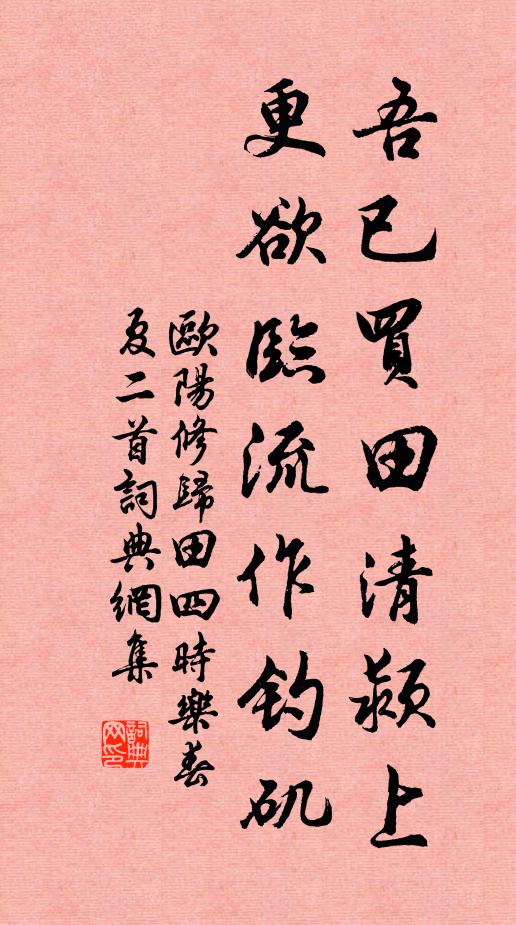 吾已買田清潁上
更欲臨流作釣磯
歐陽修歸田四時樂春
夏二首詞典網集
詞典
网印